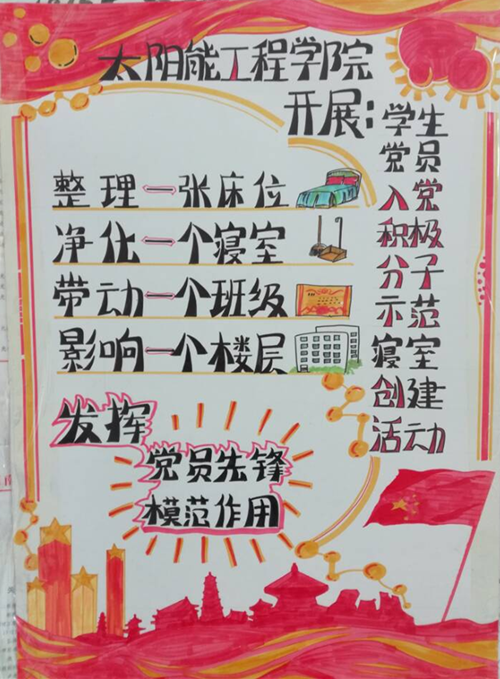 太阳能工程学院
开展：
学生
党员
入党
积极
分子
示范
寝室
创建
活动
整理一张床位
净化一个寝室
带动一个班级
影响一个楼层
发挥
党员先锋
模范作用